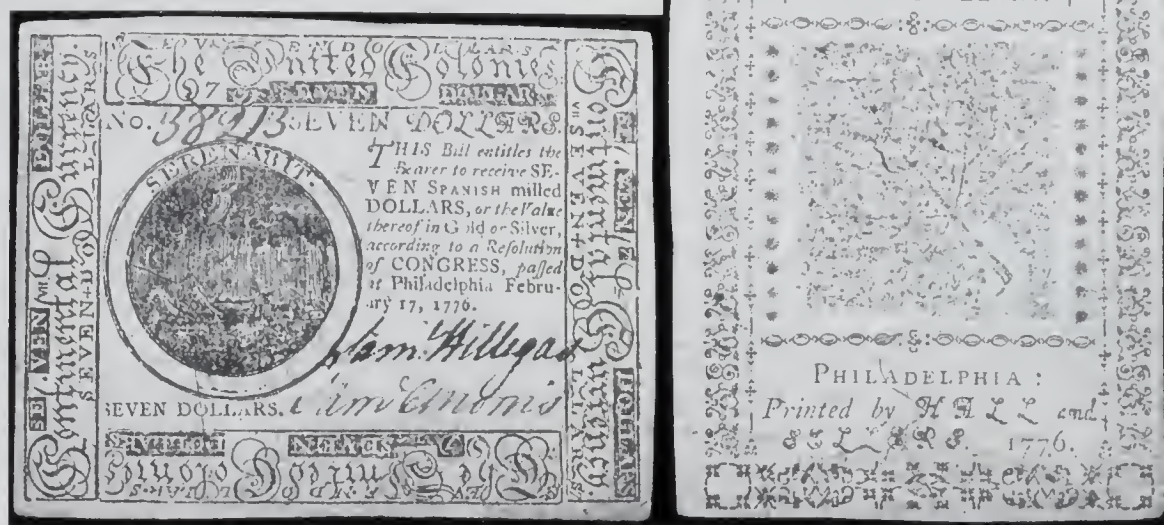 The United Colonies
SEVEN DOLLARS
No. SEVEN DOLLARS.
SERENABIT.
THIS Bill entitles the
Bearer to receive SE-
VEN SPANISH milled
DOLLARS, or the Value
thereof in Gold or Silver,
according to a Resolution
of CONGRESS, passed
at Philadelphia Febru-
ary 17, 1776.
Sam. Hillegas
SEVEN DOLLARS. Sam
SEVEN DOLLARS
The United Colonies
Continental Currency.
SEVEN DOLLARS
SEVEN DOLLARS
Continental Currency
SEVEN DOLLARS
PHILADELPHIA:
Printed by HALL and
SELLERS. 1776.